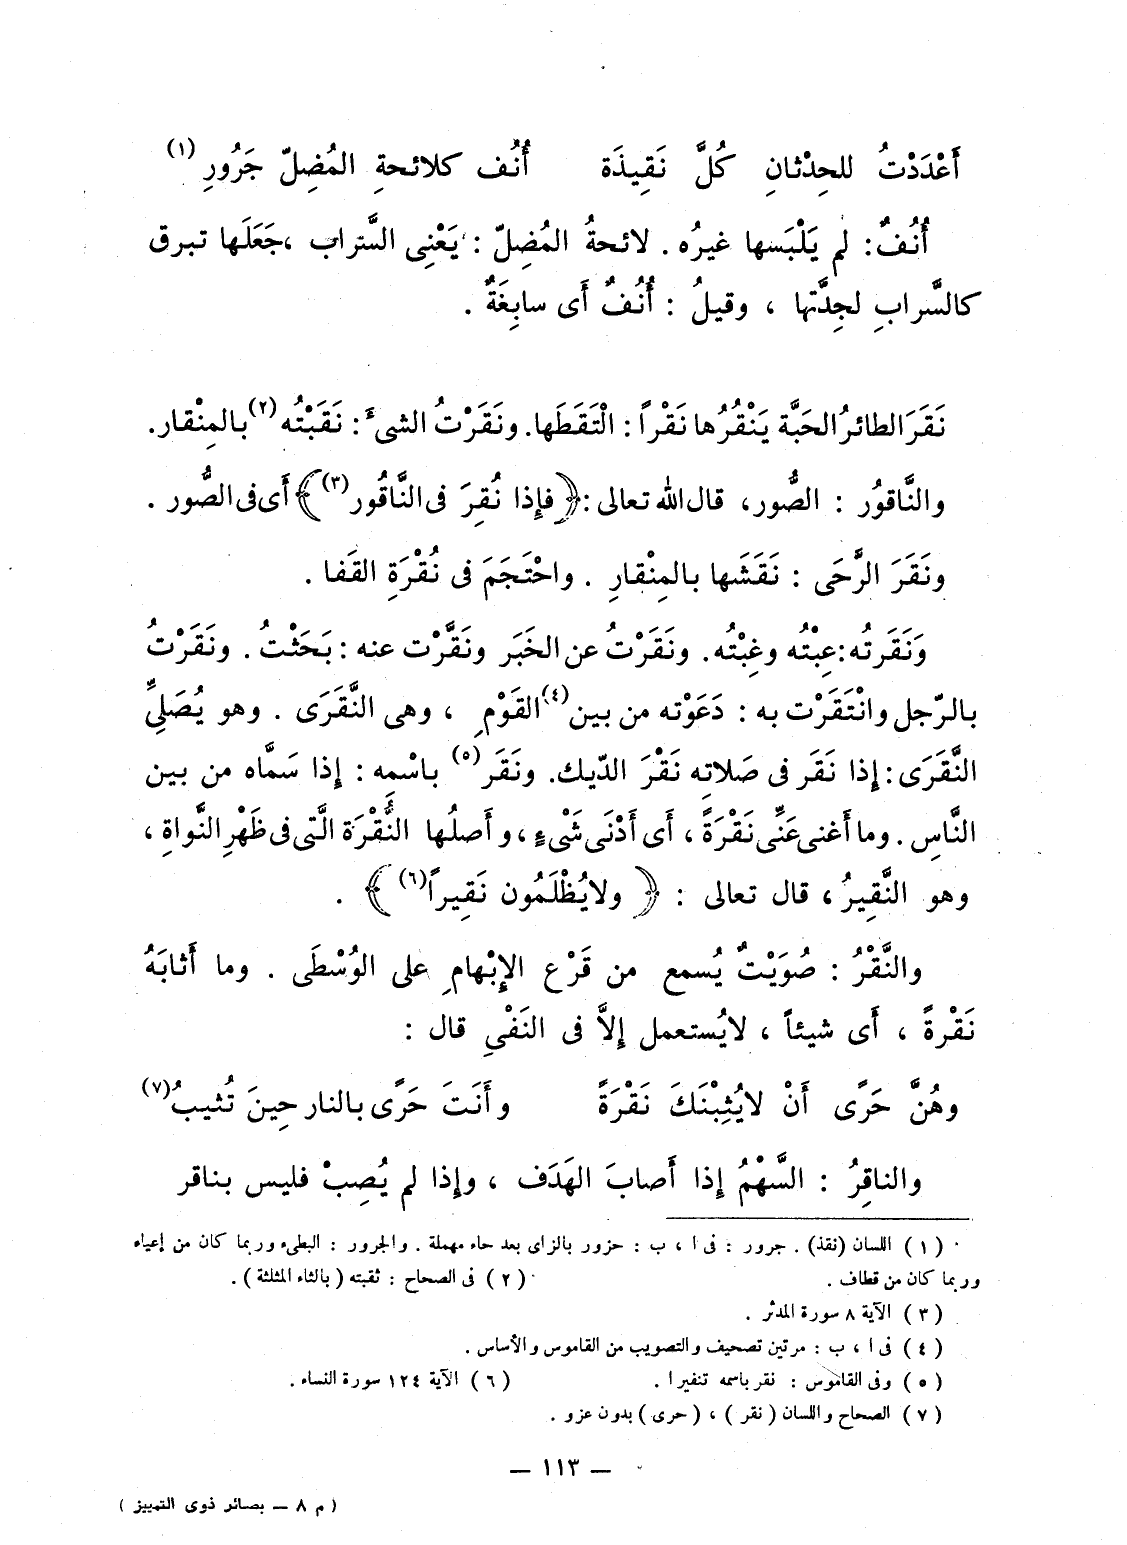 أَعْدَدْتُ للحِدْثانِ كُلَّ نَقِيذَة أُنُف كلائحةِ المُضِلّ جَرُورِ (١)
أُنُفٌ : لم يَلْبَسها غيرُه . لائحةُ المُضِلّ : يَعْنِى السَّراب ، جَعَلَها تبرق
كالسَّرابِ لجِدَّتها ، وقيلُ : أُنُفٌ أَى سابِغَةٌ .
نَقَرَ الطائرُ الحَبَّة يَنْقُرُها نَقْراً : الْتَقَطَها. ونَقَرْتُ الشىءَ : نَقَبْتُه (٢) بالمِنْقار.
والنَّاقوُر : الصُّور، قال الله تعالى : ﴿ فإِذا نُقِرَ فى النَّاقُور (٣) ﴾ أَى فى الصُّور .
ونَقَرَ الرَّحَى : نَقَشَها بالمِنْقارِ . واحْتَجَمَ فى نُقْرَةِ القَفا .
وَنَقَرتُه : عِبْتُه وغِبْتُه. ونَقَرْتُ عن الخَبَر ونَقَّرْت عنه : بَحَثْتُ . ونَقَرْتُ
بالرّجل وانْتَقَرْت به : دَعَوْته من بين (٤) القَوْمِ ، وهى النَّقَرَى . وهو يُصَلِّى
النَّقَرَى : إِذا نَقَر فى صَلاتِه نَقْرَ الدّيك. ونَقَر (٥) باسْمِه : إِذا سَمَّاه من بين
النَّاسِ . وما أَغنى عَنِّى نَقْرَةً ، أَى أَدْنَى شَىْءٍ ، وأَصلُها النُّقْرَة الَّتى فى ظَهْرِ النَّواةِ ،
وهو النَّقِيرُ ، قال تعالى : ﴿ ولا يُظْلَمُون نَقِيراً (٦) ﴾ .
والنَّقْرُ : صُوَيْتٌ يُسمع من قَرْع الإِبْهامِ على الوُسْطَى . وما أَثابَهُ
نَقْرةً ، أَى شيئاً ، لايُستعمل إِلاَّ فى النَفْىِ قال :
وهُنَّ حَرًى أَنْ لايُثِبْنَكَ نَقْرَةً وأَنتَ حَرًى بالنار حِينَ تُثيبُ (٧)
والناقِرُ : السَّهْمُ إِذا أَصابَ الهَدَف ، وإِذا لم يُصِبْ فليس بناقر
(١) اللسان (نقذ) . جرور : فى ا ، ب : حزور بالزاى بعد حاء مهملة . والجرور : البطىء وربما كان من إعياء
وربما كان من قطاف . (٢) فى الصحاح : ثقبته (بالثاء المثلثة) .
(٣) الآية ٨ سورة المدثر .
(٤) فى ا ، ب : مرتين تصحيف والتصويب من القاموس والأساس .
(٥) وفى القاموس : نقر باسمه تنفيرا . (٦) الآية ١٢٤ سورة النساء .
(٧) الصحاح واللسان (نقر) ، (حرى) بدون عزو .
— ١١٣ —
(م ٨ — بصائر ذوى التمييز)